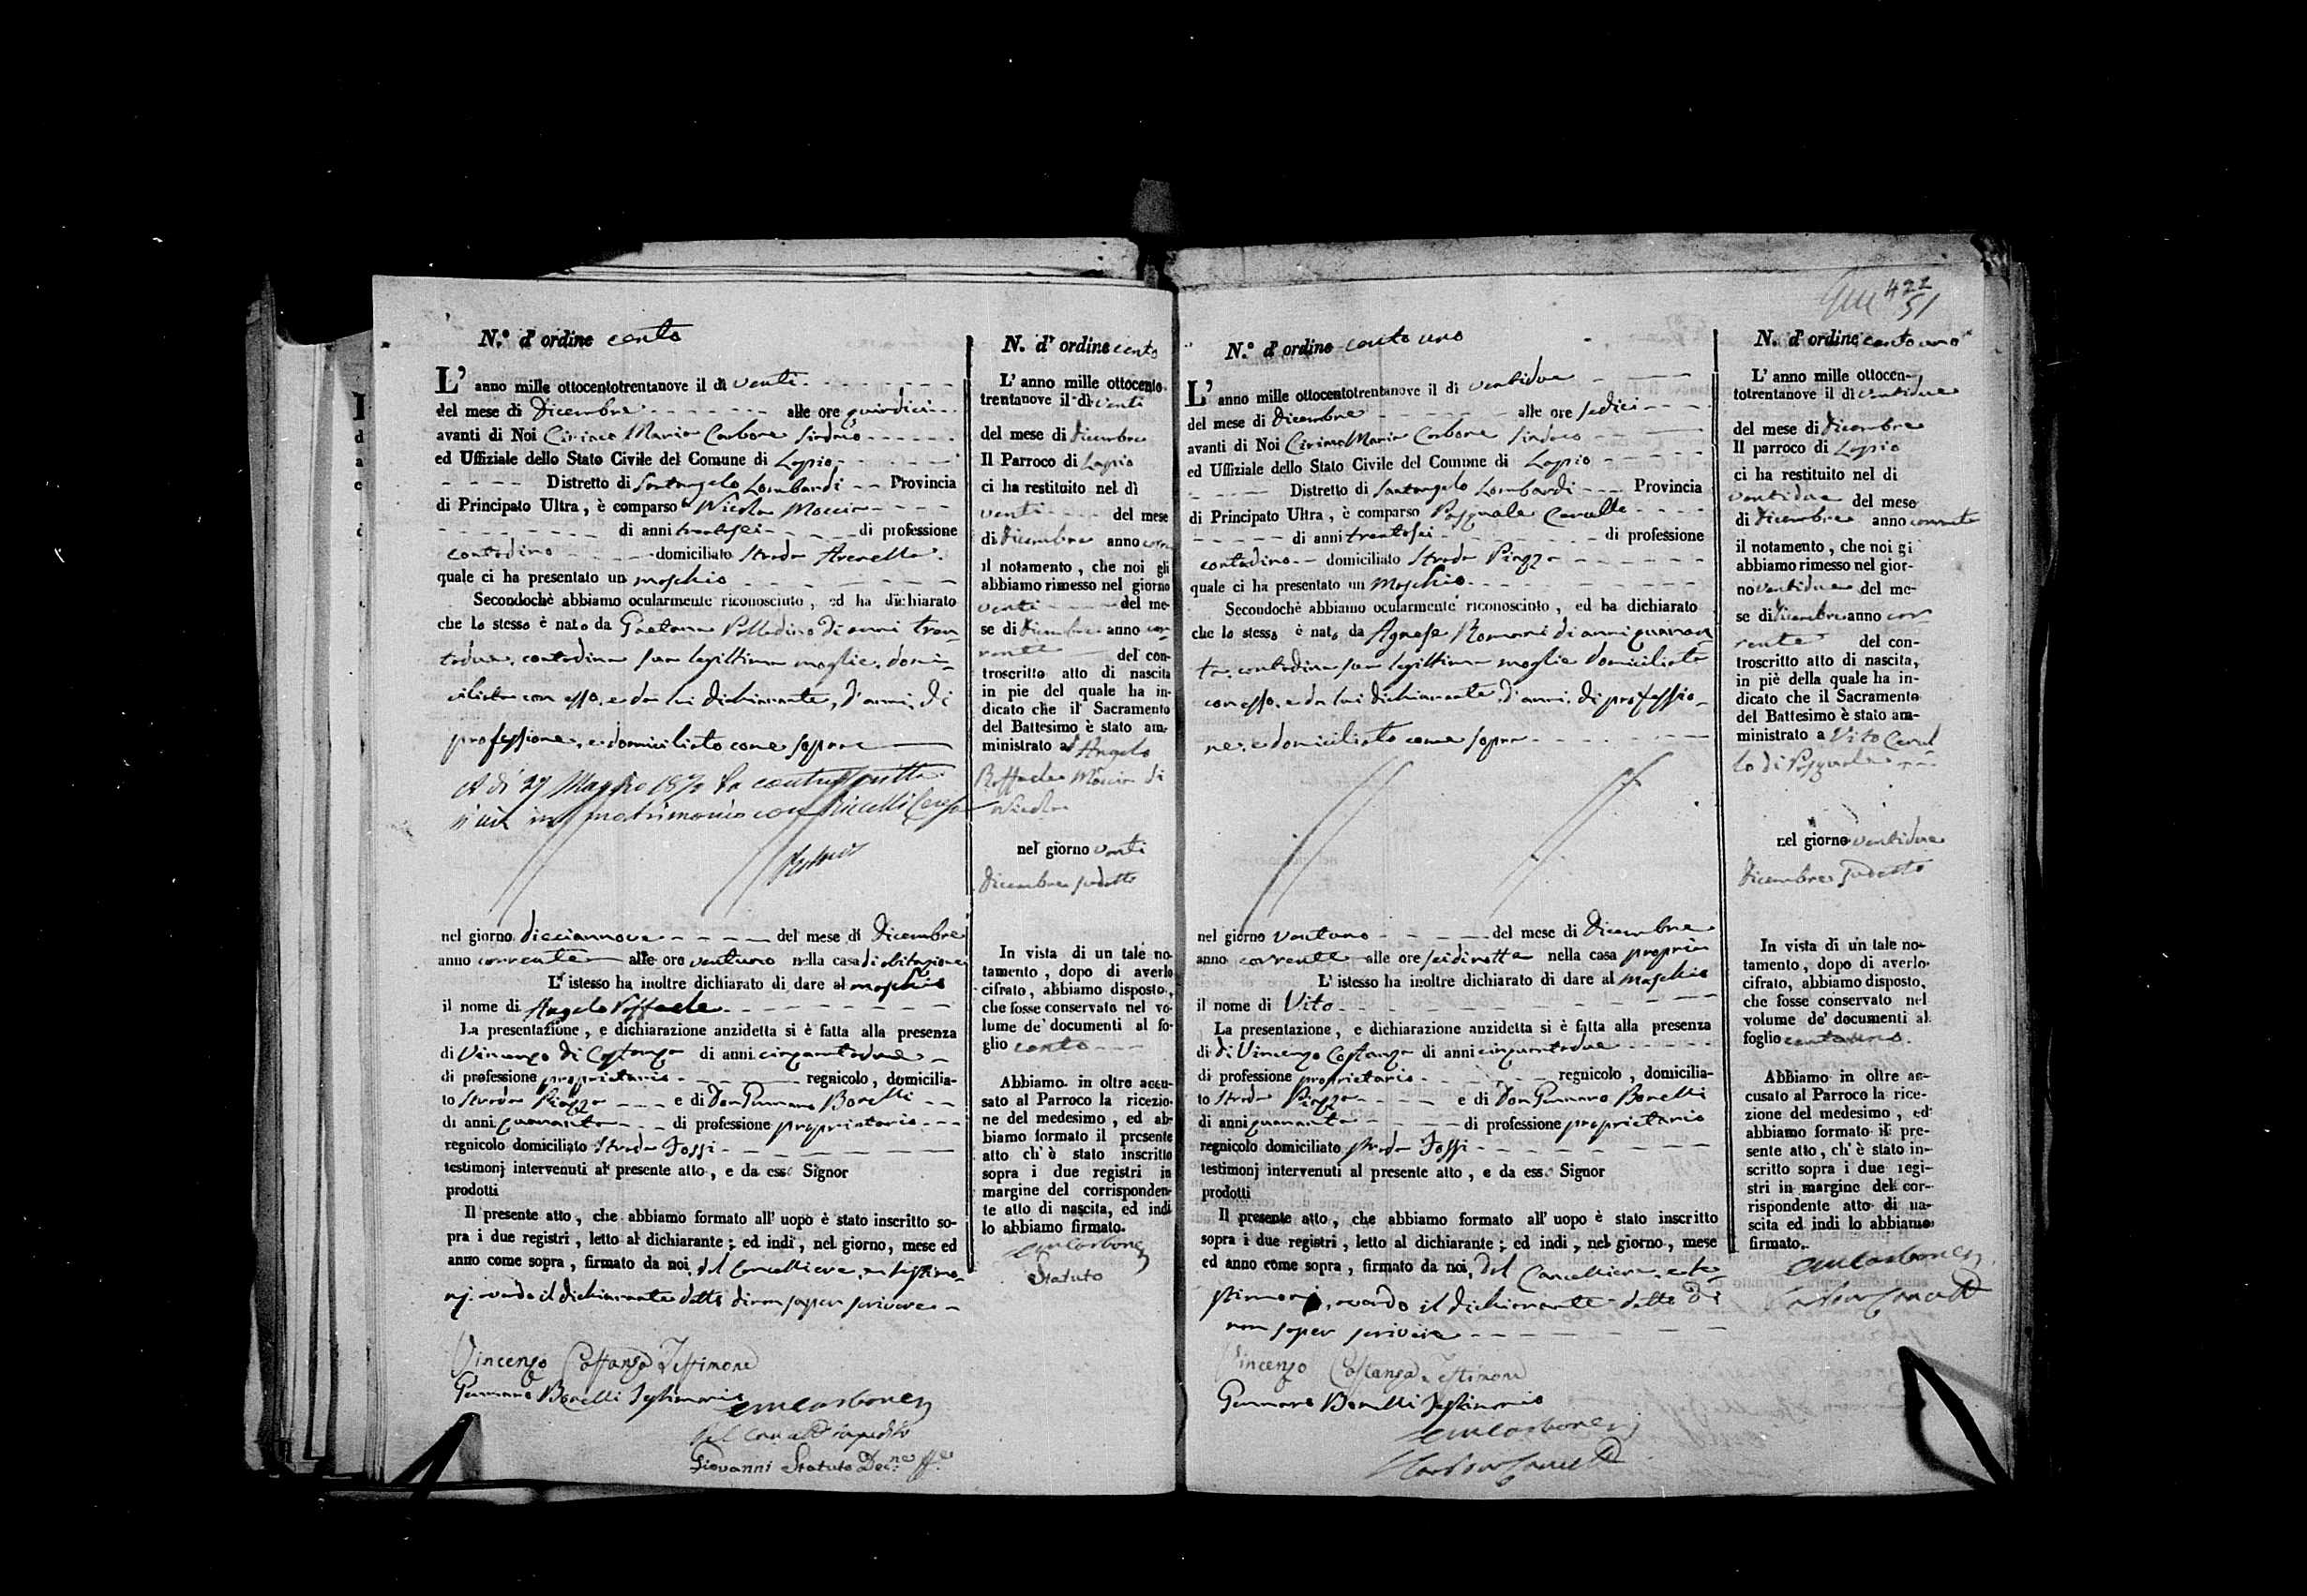 N.º d' ordine cento
L' anno mille ottocentotrentanove il di venti
del mese di Dicembre alle ore quindici
avanti di Noi Ciriaco Maria Carbone Sindaco
ed Uffiziale dello Stato Civile del Comune di Lapio
Distretto di Santangelo Lombardi Provincia
di Principato Ultra, è comparso Nicola Moccia
di anni trentasei di professione
contadino domiciliato Strada Arenella
quale ci ha presentato un maschio
Secondochè abbiamo ocularmente riconosciuto, ed ha dichiarato
che lo stesso è nato da Gaetana Polladino di anni tren
tadue, contadina sua legittima moglie, domi
ciliata con esso, e da lui dichiarante, d'anni, di
professione, e domiciliato come sopra
A di 27 Maggio 18 la controscritta
si unì in matrimonio con
nel giorno dieciannove del mese di Dicembre
anno corrente alle ore ventuno nella casa di abitazione
L' istesso ha inoltre dichiarato di dare al maschio
il nome di Angelo Raffaele
La presentazione, e dichiarazione anzidetta si è fatta alla presenza
di Vincenzo di Costanza di anni cinquantadue
di professione proprietario regnicolo, domicilia-
to Strada Piazza e di Don Gennaro Bonelli
di anni quaranta di professione proprietario
regnicolo domiciliato Strada Fossi
testimonj intervenuti al presente atto, e da esso Signor
prodotti
Il presente atto, che abbiamo formato all' uopo è stato inscritto so-
pra i due registri, letto al dichiarante; ed indi, nel giorno, mese ed
anno come sopra, firmato da noi, del Cancelliere, e testimo
nj, avendo il dichiarante detto di non saper scrivere
Vincenzo Costanza Testimone
Gennaro Bonelli Testimonio
CMCarbone
Pel Canc impedito
Giovanni Statuto Dec.ne ff.e
N. d' ordine cento
L' anno mille ottocento
trentanove il dì venti
del mese di Dicembre
Il Parroco di Lapio
ci ha restituito nel dì
venti del mese
di Dicembre anno corre
il notamento, che noi gli
abbiamo rimesso nel giorno
venti del me-
se di Dicembre anno cor
rente del con-
troscritto atto di nascita
in piè del quale ha in-
dicato che il Sacramento
del Battesimo è stato am-
ministrato ad Angelo
Raffaele Moccia di
Nicola
nel giorno venti
Dicembre sudetto
In vista di un tale no-
tamento, dopo di averlo
cifrato, abbiamo disposto,
che fosse conservato nel vo-
lume de' documenti al fo-
glio cento
Abbiamo in oltre accu-
sato al Parroco la ricezio-
ne del medesimo, ed ab-
biamo formato il presente
atto ch' è stato inscritto
sopra i due registri in
margine del corrisponden-
te atto di nascita, ed indi
lo abbiamo firmato.
CMCarbone
Statuto
422
51
N.º d' ordine cento uno
L' anno mille ottocentotrentanove il di ventidue
del mese di Dicembre alle ore sedici
avanti di Noi Ciriaco Maria Carbone Sindaco
ed Uffiziale dello Stato Civile del Comune di Lapio
Distretto di Santangelo Lombardi Provincia
di Principato Ultra, è comparso Pasquale Carullo
di anni trentasei di professione
contadino domiciliato Strada Piazza
quale ci ha presentato un Maschio
Secondochè abbiamo ocularmente riconosciuto, ed ha dichiarato
che lo stesso è nato da Agnese Romani di anni quaran
ta, contadina sua legittima moglie domiciliata
con esso, e da lui dichiarante, d'anni, di professio
ne, e domiciliato come sopra
nel giorno ventuno del mese di Dicembre
anno corrente alle ore seidinotte nella casa propria
L' istesso ha inoltre dichiarato di dare al maschio
il nome di Vito
La presentazione, e dichiarazione anzidetta si è fatta alla presenza
di di Vincenzo Costanza di anni cinquantadue
di professione proprietario regnicolo, domicilia-
to Strada Piazza e di Don Gennaro Bonelli
di anni quaranta di professione proprietario
regnicolo domiciliato Strada Fossi
testimonj intervenuti al presente atto, e da esso Signor
prodotti
Il presente atto, che abbiamo formato all' uopo è stato inscritto
sopra i due registri, letto al dichiarante; ed indi, nel giorno, mese
ed anno come sopra, firmato da noi, del Cancelliere, e te
stimonj, avendo il dichiarante detto di
non saper scrivere
Vincenzo Costanza Testimone
Gennaro Bonelli Testimonio
CMCarbone
N. d' ordine cento uno
L' anno mille ottocen-
totrentanove il dì ventidue
del mese di Dicembre
Il parroco di Lapio
ci ha restituito nel di
ventidue del mese
di Dicembre anno corrente
il notamento, che noi gi
abbiamo rimesso nel gior-
no ventidue del me-
se di Dicembre anno cor
rente del con-
troscritto atto di nascita,
in piè della quale ha in-
dicato che il Sacramento
del Battesimo è stato am-
ministrato a Vito Carul
lo di Pasquale
nel giorno ventidue
Dicembre sudetto
In vista di un tale no-
tamento, dopo di averlo
cifrato, abbiamo disposto,
che fosse conservato nel
volume de' documenti al
foglio centouno.
Abbiamo in oltre ac-
cusato al Parroco la rice-
zione del medesimo, ed
abbiamo formato il pre-
sente atto, ch' è stato in-
scritto sopra i due regi-
stri in margine del cor-
rispondente atto di na-
scita ed indi lo abbiamo
firmato.
CMCarbone